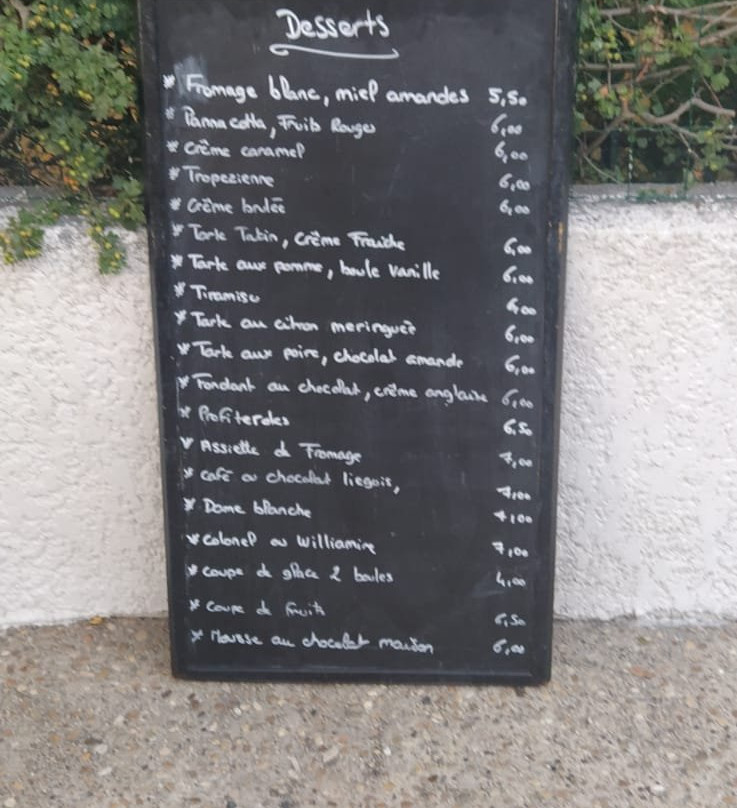 Desserts
* Fromage blanc, miel amandes 5,50
* Panna cotta, Fruits Rouges 6,00
* Crème caramel 6,00
* Tropezienne 6,00
* Crème brulée 6,00
* Tarte Tatin, Crème Fraiche 6,00
* Tarte aux pomme, boule Vanille 6,00
* Tiramisu
* Tarte au citron meringuée 6,00
* Tarte aux poire, chocolat amande 6,00
* Fondant au chocolat, crème anglaise 6,00
* Profiteroles 6,50
* Assiette de Fromage 7,00
* Café ou chocolat liegois, 7,00
* Dame blanche 7,00
* Colonel ou Williamine 7,00
* Coupe de glace 2 boules 4,00
* Coupe de fruits 6,50
* Mousse au chocolat maison 6,00